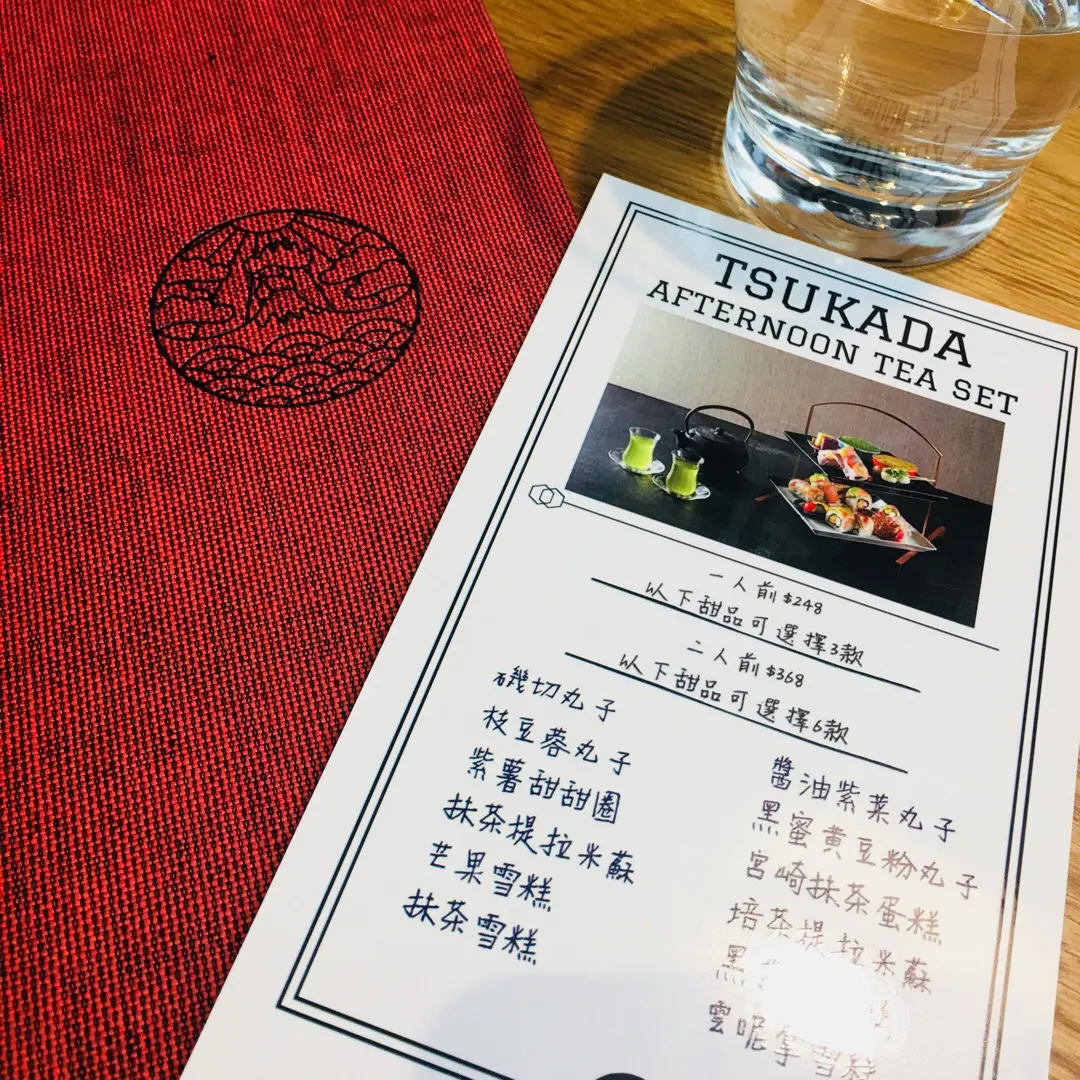 TSUKADA
AFTERNOON TEA SET
一人前$248
以下甜品可選擇3款
二人前$368
以下甜品可選擇6款
磯切丸子
枝豆蓉丸子
紫薯甜甜圈
抹茶提拉米蘇
芒果雪糕
抹茶雪糕
醬油紫菜丸子
黑蜜黄豆粉丸子
宮崎抹茶蛋糕
培茶提拉米蘇
黑
雲呢拿雪糕